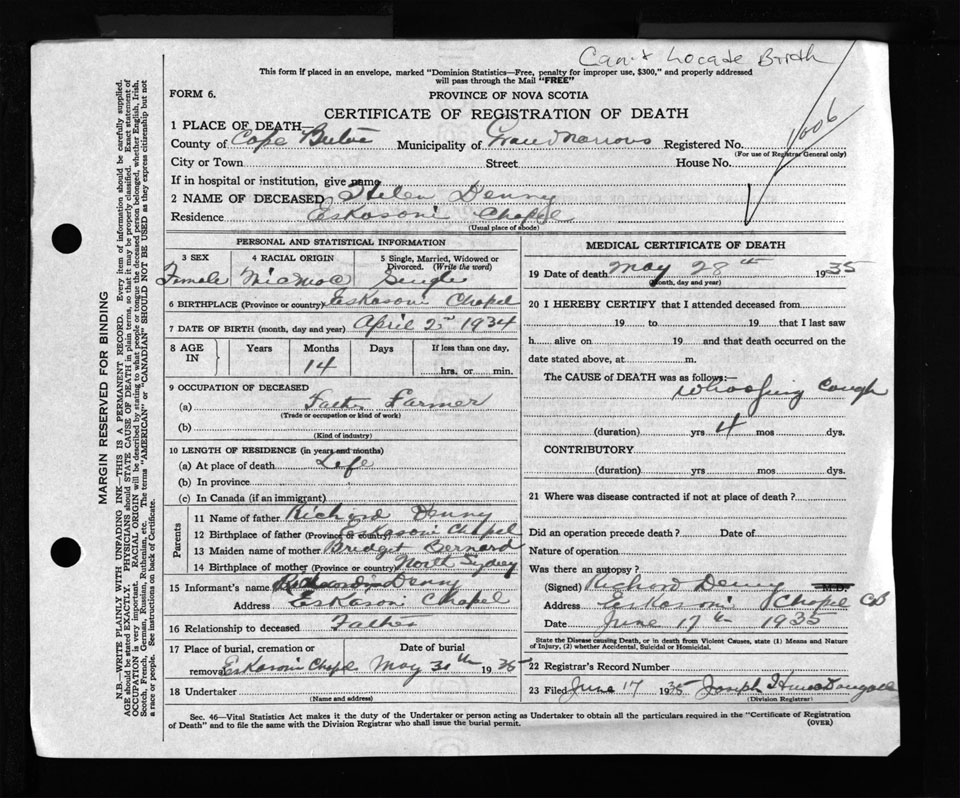 Can't Locate Birth
This form if placed in an envelope, marked "Dominion Statistics—Free, penalty for improper use, $300," and properly addressed
will pass through the Mail "FREE"
FORM 6.
PROVINCE OF NOVA SCOTIA
CERTIFICATE OF REGISTRATION OF DEATH
1006
1 PLACE OF DEATH—
County of Cape Breton Municipality of Grand Narrows Registered No.
(For use of Registrar General only)
City or Town Street House No.
If in hospital or institution, give name
2 NAME OF DECEASED Helen Denny
Residence Eskasoni Chapel
(Usual place of abode)
PERSONAL AND STATISTICAL INFORMATION
3 SEX 4 RACIAL ORIGIN 5 Single, Married, Widowed or Divorced. (Write the word)
Female Micmac Single
6 BIRTHPLACE (Province or country) Eskasoni Chapel
7 DATE OF BIRTH (month, day and year) April 2nd 1934
8 AGE IN Years Months Days If less than one day,
14 hrs. or min.
9 OCCUPATION OF DECEASED
(a) Father Farmer
(Trade or occupation or kind of work)
(b)
(Kind of industry)
10 LENGTH OF RESIDENCE (in years and months)
(a) At place of death Life
(b) In province
(c) In Canada (if an immigrant)
Parents
11 Name of father Richard Denny
12 Birthplace of father (Province or country) Eskasoni Chapel
13 Maiden name of mother Bridget Bernard
14 Birthplace of mother (Province or country) North Sydney
15 Informant's name Richard Denny
Address Eskasoni Chapel
16 Relationship to deceased Father
17 Place of burial, cremation or removal Eskasoni Chapel Date of burial May 30th 1935
18 Undertaker
(Name and address)
MEDICAL CERTIFICATE OF DEATH
19 Date of death May 28th 1935
(Month, day and year)
20 I HEREBY CERTIFY that I attended deceased from
19 to 19 that I last saw
h alive on 19 and that death occurred on the
date stated above, at m.
The CAUSE of DEATH was as follows:—
Whooping Cough
(duration) yrs 4 mos dys.
CONTRIBUTORY
(duration) yrs mos dys.
21 Where was disease contracted if not at place of death?
Did an operation precede death? Date of
Nature of operation
Was there an autopsy?
(Signed) Richard Denny M.D.
Address Eskasoni Chapel CB
Date June 17th 1935
State the Disease causing Death, or in death from Violent Causes, state (1) Means and Nature
of Injury, (2) whether Accidental, Suicidal or Homicidal.
22 Registrar's Record Number
23 Filed June 17 1935 Joseph H MacDougall
(Division Registrar)
Sec. 46—Vital Statistics Act makes it the duty of the Undertaker or person acting as Undertaker to obtain all the particulars required in the "Certificate of Registration
of Death" and to file the same with the Division Registrar who shall issue the burial permit.
(OVER)
MARGIN RESERVED FOR BINDING
N.B.—WRITE PLAINLY WITH UNFADING INK—THIS IS A PERMANENT RECORD. Every item of information should be carefully supplied.
AGE should be stated EXACTLY. PHYSICIANS should STATE CAUSE OF DEATH in plain terms, so that it may be properly classified. Exact statement of
OCCUPATION is very important. RACIAL ORIGIN will be described by stating to what people or tongue the deceased person belonged, whether English, Irish,
Scotch, French, German, Russian, Ruthenian, etc. The terms "AMERICAN" or "CANADIAN" SHOULD NOT BE USED as they express citizenship but not
a race or people. See instructions on back of Certificate.